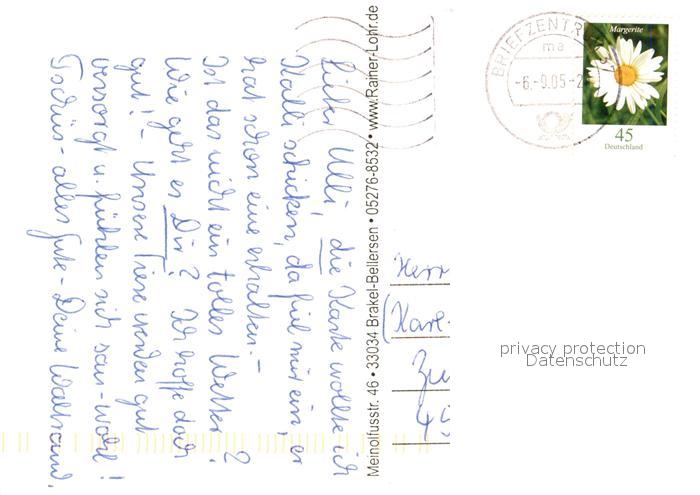 Lieber Ulli, die Karte wollte ich
Kalli schicken, da fiel mir ein, er
hat schon eine erhalten. -
Ist das nicht ein tolles Wetter?
Wie geht es Dir? Ich hoffe doch
gut! - Unsere Tiere werden gut
versorgt u. fühlen sich sau-wohl!
Tschüs - alles Gute - Deine Waltraud.
Meinolfusstr. 46 • 33034 Brakel-Bellersen • 05276-8532 • www.Rainer-Lohr.de
BRIEFZENTR
ma
-6.-9.05-2
Margerite
45
Deutschland
Herr
(Karl-
Zu
49
privacy protection
Datenschutz